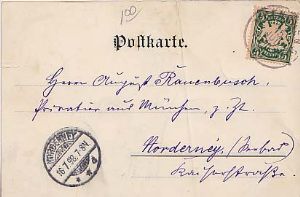 100
Postkarte.
Herrn August Rauenbusch,
Privatier aus München, z. Zt.
Norderney / (Seebad)
Kaiserstraße.
NORDERNEY
16.7.98.7-8N
* * d